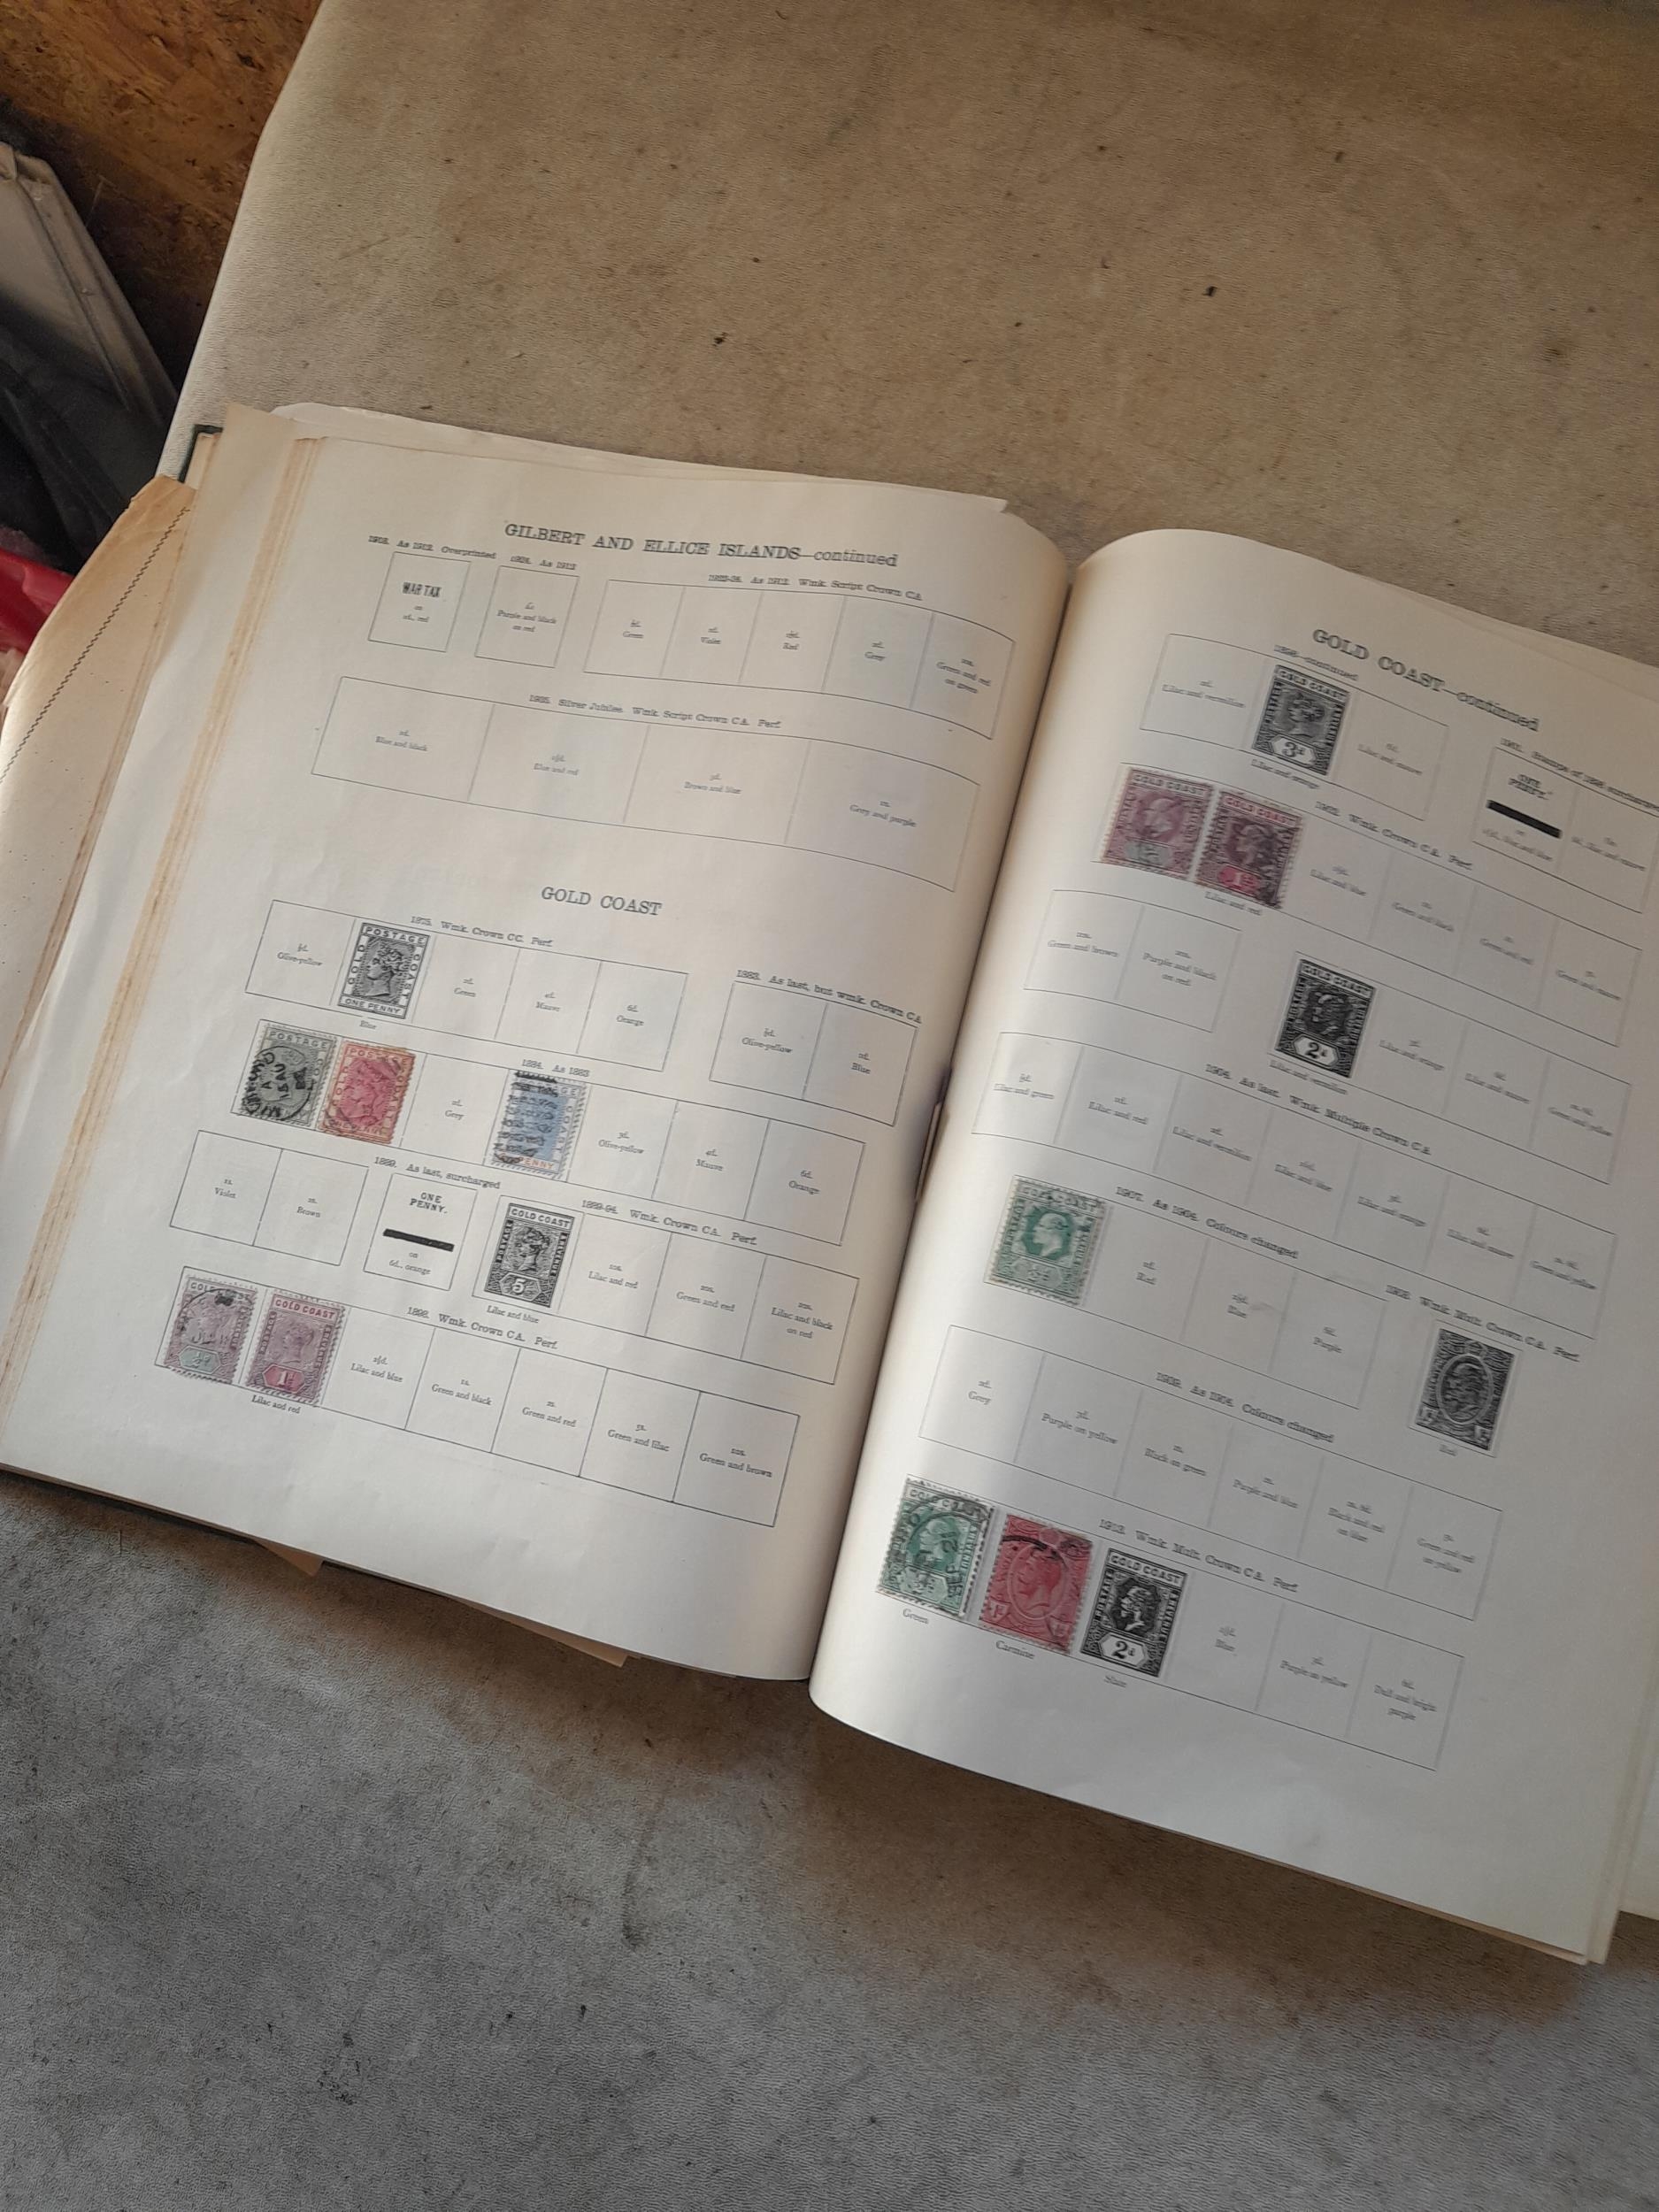 GILBERT AND ELLICE ISLANDS—continued
1918. As 1912. Overprinted
1924. As 1912
1922-24. As 1912. Wmk. Script Crown CA
WAR TAX
on
1d., red
£1
Purple and black
on red
½d.
Green
1d.
Violet
1½d.
Red
2d.
Grey
10s.
Green and red
on green
1935. Silver Jubilee. Wmk. Script Crown CA. Perf.
1d.
Blue and black
1½d.
Blue and red
3d.
Brown and blue
1s.
Grey and purple
GOLD COAST
1875. Wmk. Crown CC. Perf.
½d.
Olive-yellow
POSTAGE
GOLD
COAST
ONE PENNY
Blue
2d.
Green
4d.
Mauve
6d.
Orange
1883. As last, but wmk. Crown CA
½d.
Olive-yellow
1d.
Blue
1884. As 1883
POSTAGE
POSTAGE
2d.
Grey
PENNY
3d.
Olive-yellow
4d.
Mauve
6d.
Orange
1s.
Violet
2s.
Brown
1889. As last, surcharged
ONE
PENNY.
on
6d., orange
1889-94. Wmk. Crown CA. Perf.
GOLD COAST
POSTAGE
REVENUE
5s
Lilac and blue
10s.
Lilac and red
20s.
Green and red
20s.
Lilac and black
on red
1898. Wmk. Crown CA. Perf.
GOLD COAST
½d
GOLD COAST
1d
Lilac and red
2½d.
Lilac and blue
1s.
Green and black
2s.
Green and red
5s.
Green and lilac
10s.
Green and brown
GOLD COAST—continued
1898—continued
2d.
Lilac and vermilion
GOLD COAST
3d
Lilac and orange
6d.
Lilac and mauve
1901. Stamps of 1898 surcharged
ONE
PENNY.
on
2½d., lilac and blue
6d., lilac and mauve
1902. Wmk. Crown CA. Perf.
GOLD COAST
GOLD COAST
1d
Lilac and red
2½d.
Lilac and blue
1s.
Green and black
2s.
Green and red
5s.
Green and mauve
10s.
Green and brown
20s.
Purple and black
on red
GOLD COAST
2d
Lilac and vermilion
3d.
Lilac and orange
6d.
Lilac and mauve
2s. 6d.
Green and yellow
1904. As last. Wmk. Multiple Crown CA
½d.
Lilac and green
1d.
Lilac and red
2d.
Lilac and vermilion
2½d.
Lilac and blue
3d.
Lilac and orange
6d.
Lilac and mauve
2s. 6d.
Green and yellow
1907. As 1904. Colours changed
1d.
Red
2½d.
Blue
6d.
Purple
1908. Wmk. Mult. Crown CA. Perf.
Red
1909. As 1904. Colours changed
2d.
Grey
3d.
Purple on yellow
1s.
Black on green
2s.
Purple and blue
2s. 6d.
Black and red
on blue
5s.
Green and red
on yellow
1913. Wmk. Mult. Crown CA. Perf.
GOLD COAST
Green
Carmine
GOLD COAST
POSTAGE
REVENUE
2d
Slate
2½d.
Blue
3d.
Purple on yellow
6d.
Dull and bright
purple